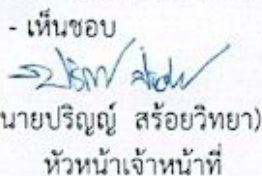 - เห็นชอบ
นายปริญญ์ สร้อยวิทยา)
หัวหน้าเจ้าหน้าที่